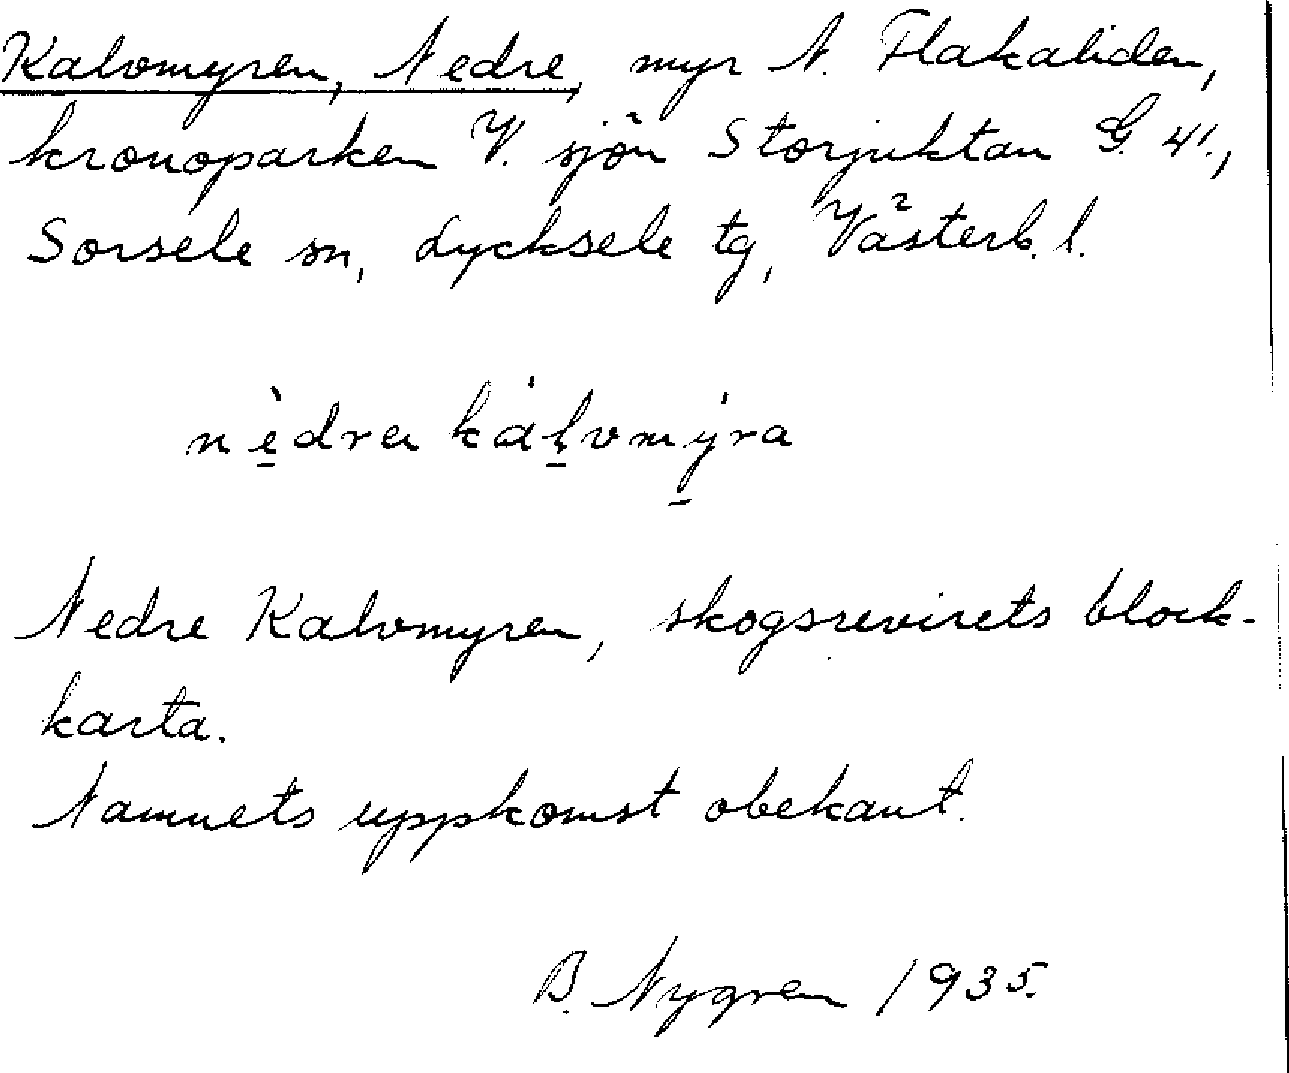 Kalvmyren, Nedre, myr N. Flakaliden,
kronoparken V. sjön Storjuktan G. 41.,
Sorsele sn, Lycksele tg, Västerb. l.
nèdra kálvmýra
Nedre Kalvmyren, skogsrevirets block-
karta.
Namnets uppkomst obekant.
B. Nygren 1935.